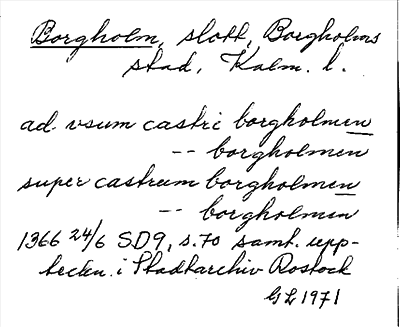 Borgholm, slott, Borgholms
stad, Kalm. l.
ad vsum castri borgholmen
-- borgholmen
super castrum borgholmen
-- borgholmen
1366 24/6 SD9, s.70 samt. upp-
teckn. i Stadtarchiv Rostock
GL 1971